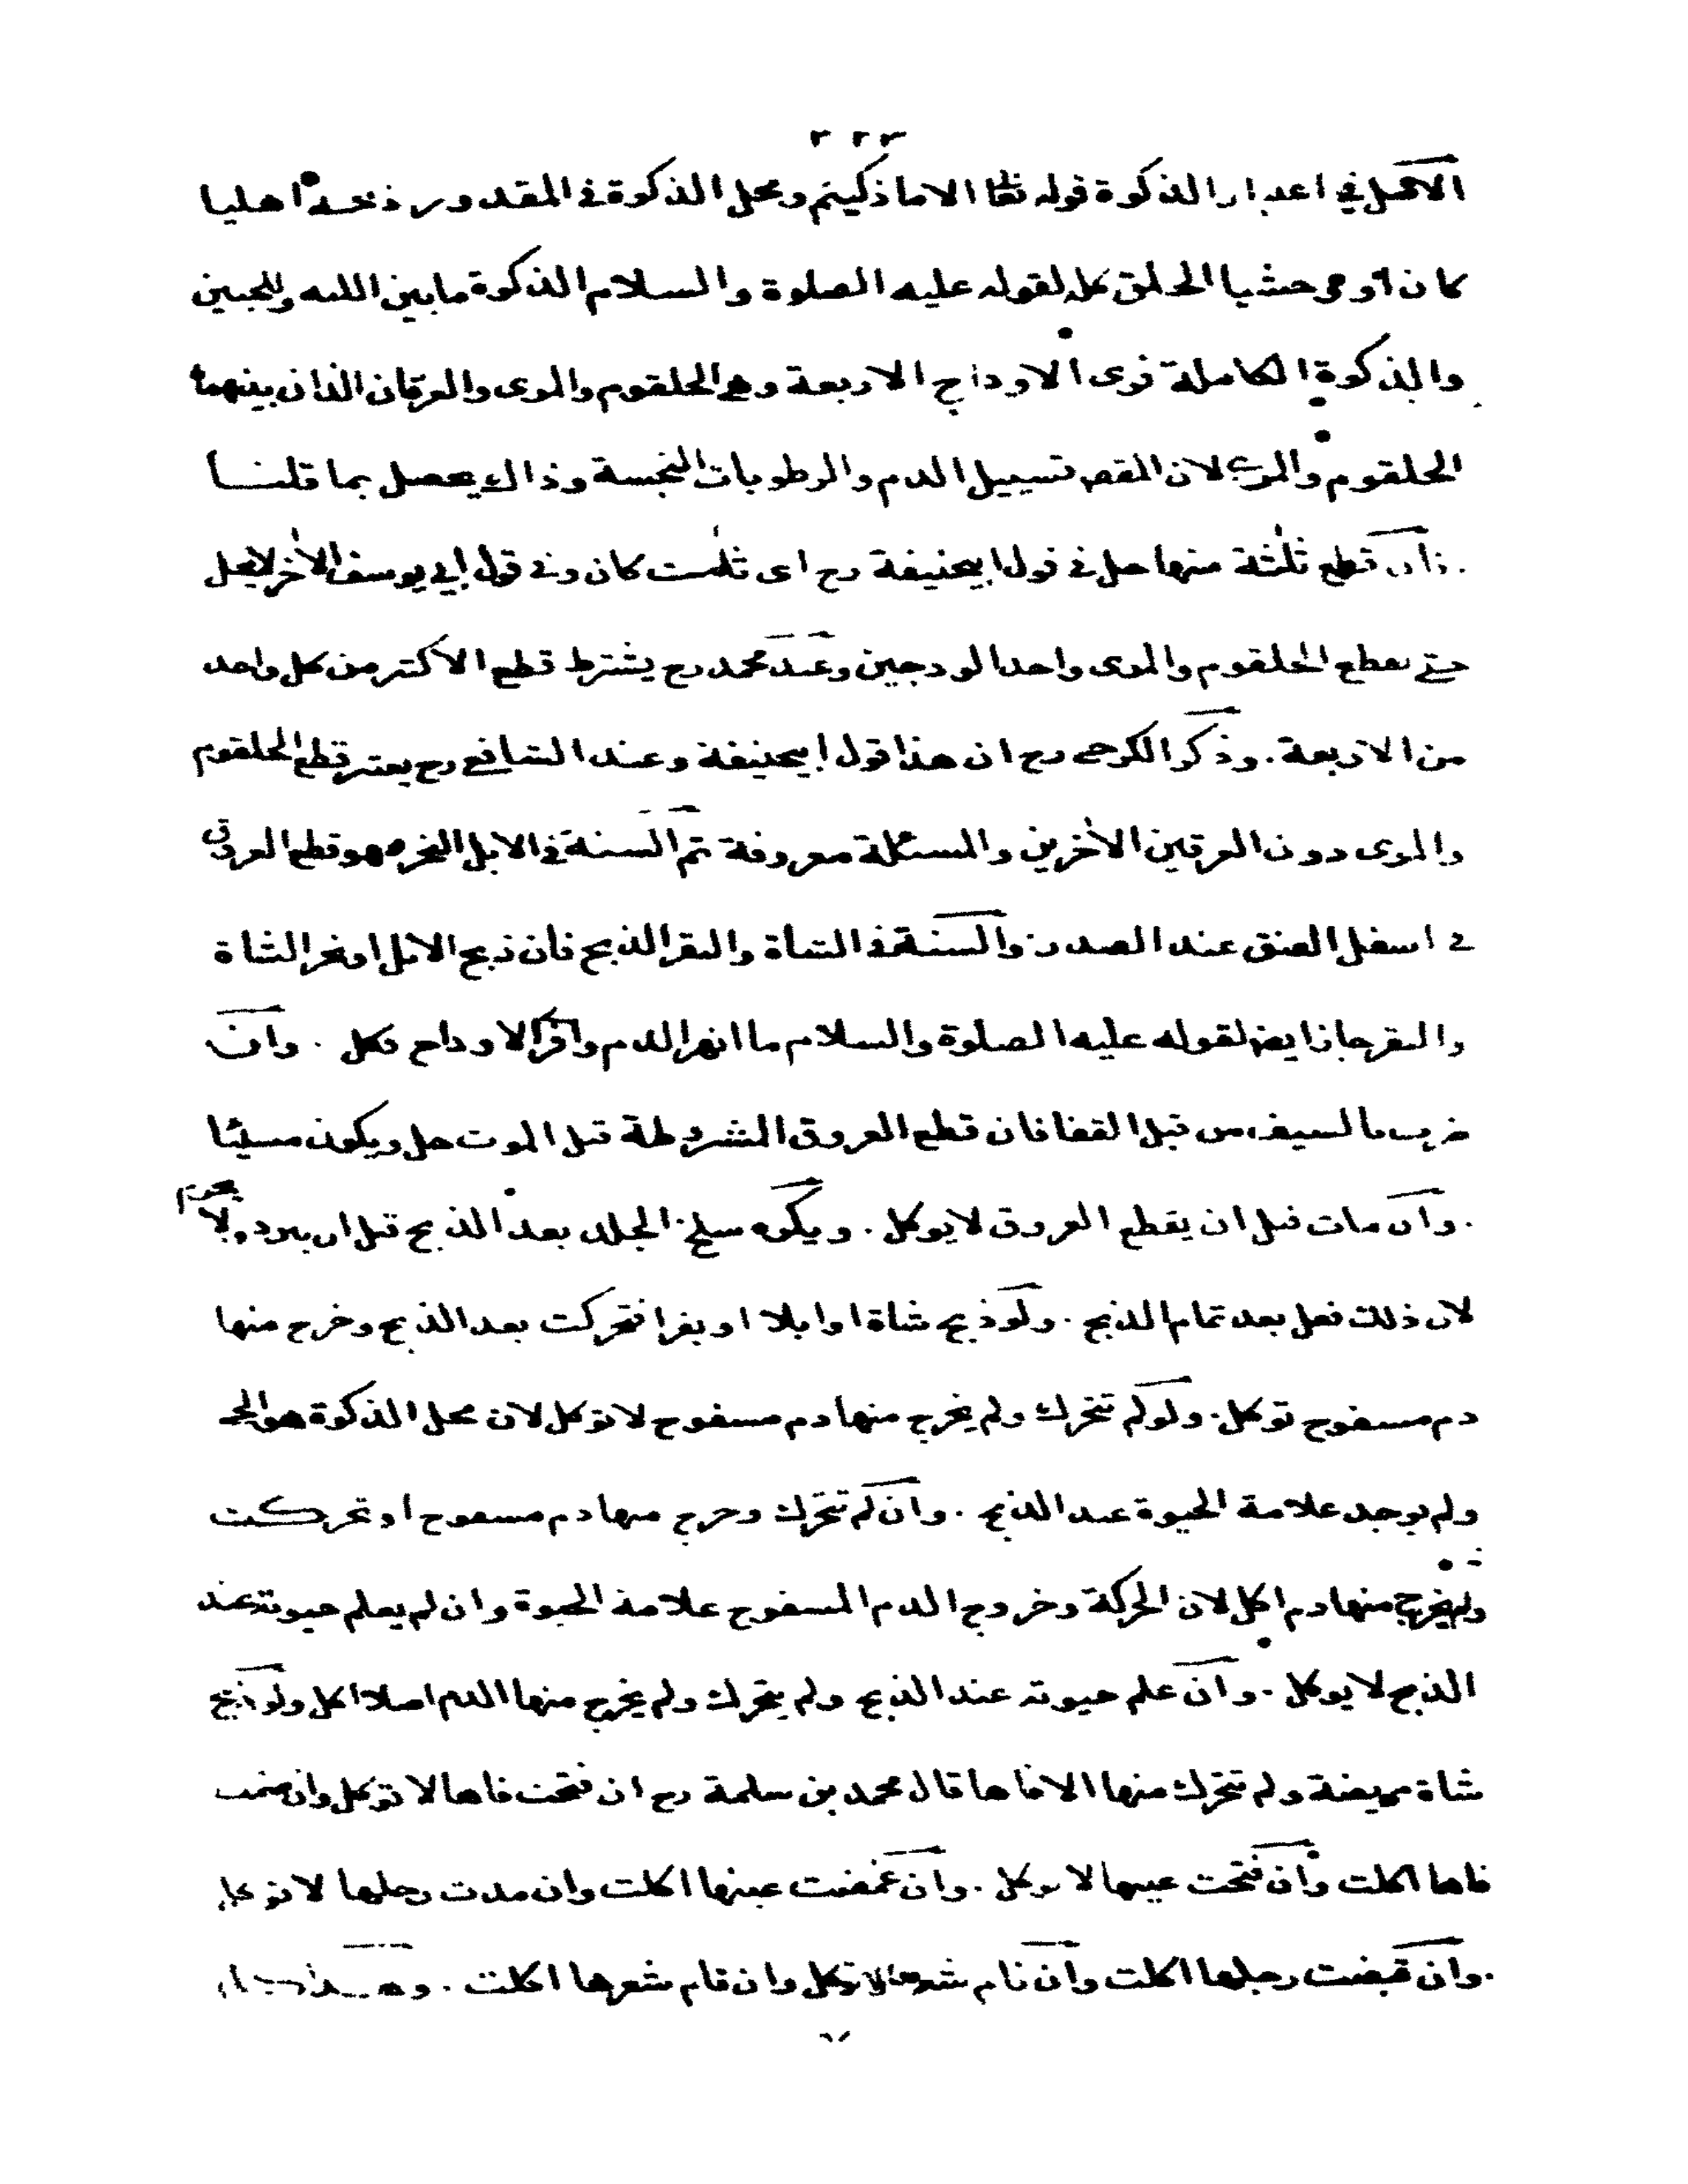 ٢٢٣
الاصل في اعتبار الذكوة قوله تعا الا ما ذكيتم ومحل الذكوة في المقدور ذبحه اهليا
كان او وحشيا الحلق كله لقوله عليه الصلوة والسلام الذكوة ما بين اللبه واللحيين
والذكوة الكاملة فرى الاوداج الاربعة وهى الحلقوم والمرى والعرقان اللذان بينهما
الحلقوم والمرى لان المقص تسييل الدم والرطوبات النجسة وذالك يحصل بما قلنا
. فان قطع ثلثة منها حل في قول ابيحنيفة رح اى ثلث كان وفى قول ابى يوسف الاخر لا يحل
حتى يقطع الحلقوم والمرى واحد الودجين وعند محمد رح يشترط قطع الاكثر من كل واحد
من الاربعة . وذكر الكرخى رح ان هذا قول ابيحنيفة وعند الشافعى رح يعتبر قطع الحلقوم
والمرى دون العرقين الاخرين والمسئلة معروفة ثم السنة فى الابل النحر وهو قطع العرق
فى اسفل العنق عند الصدر . والسنة فى الشاة والبقر الذبح فان ذبح الابل او نحر الشاة
والبقر جاز ايضا لقوله عليه الصلوة والسلام ما انهر الدم وافرى الاوداج فكل . وان
ضرب بالسيف من قبل القفا فان قطع العروق المشروطة قبل الموت حل ويكون مسيئا
. وان مات قبل ان يقطع العروق لا يوكل . ويكره سلخ الجلد بعد الذبح قبل ان يبرد ولا يحرم
لان ذلك فعل بعد تمام الذبح . ولو ذبح شاة او ابلا او بقرا فتحركت بعد الذبح وخرج منها
دم مسفوح توكل . ولو لم تتحرك ولم يخرج منها دم مسفوح لا توكل لان محل الذكوة هو الحى
ولم يوجد علامة الحيوة عند الذبح . وان لم تتحرك وخرج منها دم مسفوح او تحركت
ولم يخرج منها دم اكل لان الحركة وخروج الدم المسفوح علامة الحيوة وان لم يعلم حيوته عند
الذبح لا يوكل . وان علم حيوته عند الذبح ولم يتحرك ولم يخرج منها الدم اصلا اكل ولو ذبح
شاة مريضة ولم تتحرك منها الا فاها قال محمد بن سلمة رح ان فتحت فاها لا توكل وان ضمت
فاها اكلت وان فتحت عينها لا توكل . وان غمضت عينها اكلت وان مدت رجلها لا توكل
. وان قبضت رجلها اكلت وان نام شعرها لا توكل وان قام شعرها اكلت .